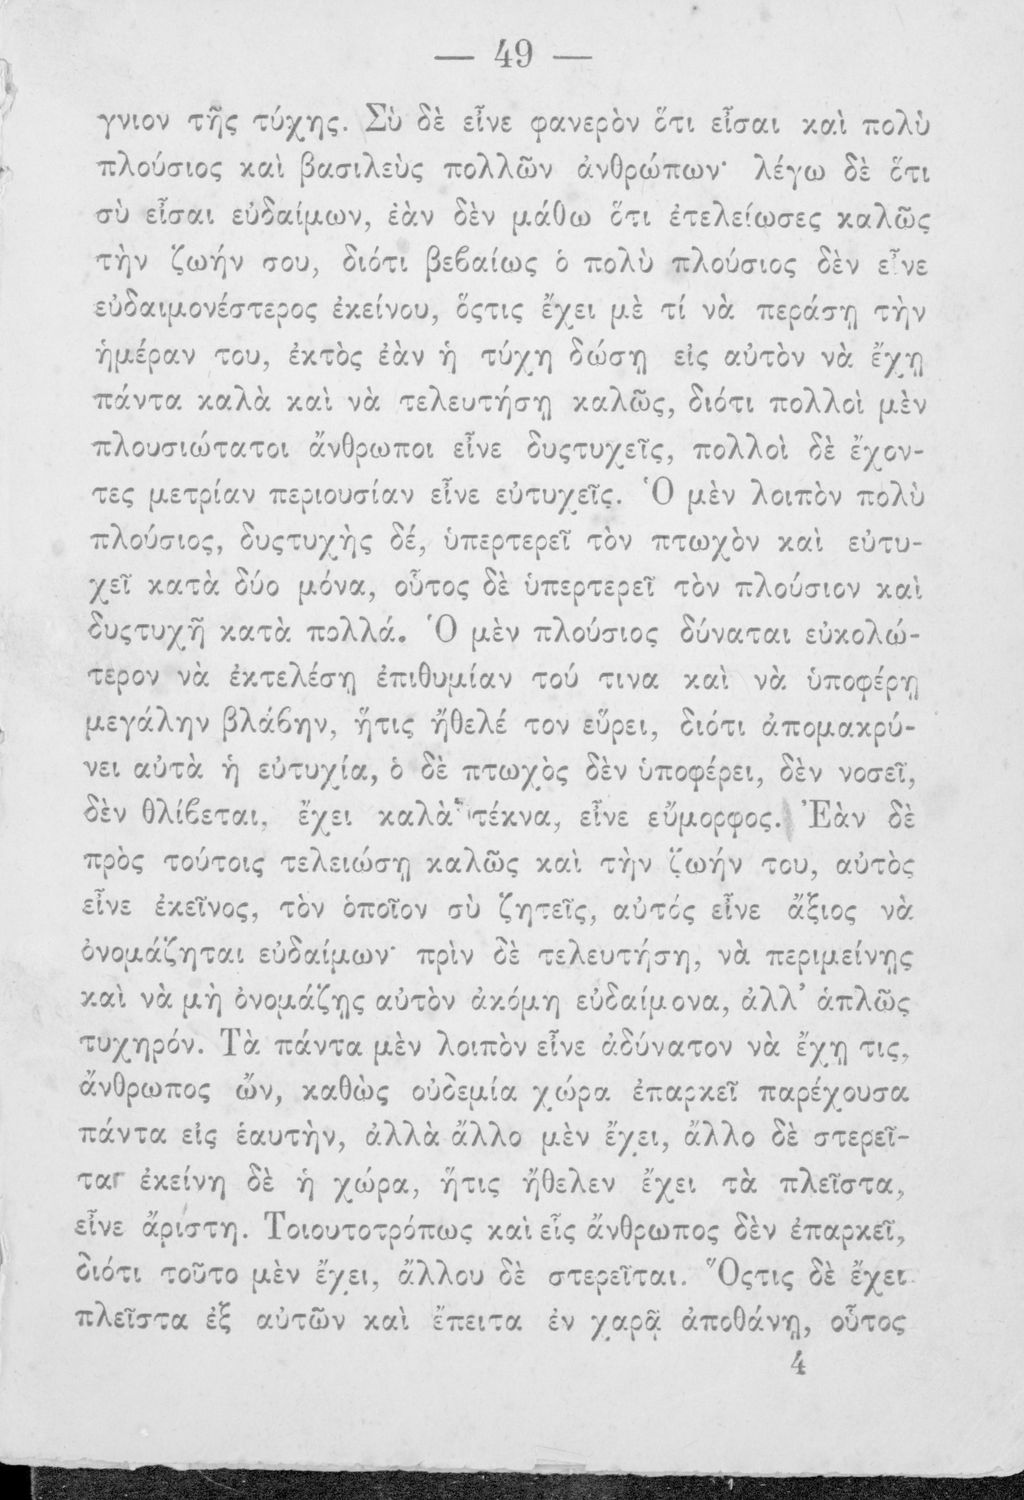 — 49 —
γνιον τῆς τύχης. Σὺ δὲ εἶνε φανερὸν ὅτι εἶσαι καὶ πολὺ
πλούσιος καὶ βασιλεὺς πολλῶν ἀνθρώπων· λέγω δὲ ὅτι
σὺ εἶσαι εὐδαίμων, ἐὰν δὲν μάθω ὅτι ἐτελείωσες καλῶς
τὴν ζωήν σου, διότι βεβαίως ὁ πολὺ πλούσιος δὲν εἶνε
εὐδαιμονέστερος ἐκείνου, ὅςτις ἔχει μὲ τί νὰ περάσῃ τὴν
ἡμέραν του, ἐκτὸς ἐὰν ἡ τύχη δώσῃ εἰς αὐτὸν νὰ ἔχῃ
πάντα καλὰ καὶ νὰ τελευτήσῃ καλῶς, διότι πολλοὶ μὲν
πλουσιώτατοι ἄνθρωποι εἶνε δυςτυχεῖς, πολλοὶ δὲ ἔχον-
τες μετρίαν περιουσίαν εἶνε εὐτυχεῖς. Ὁ μὲν λοιπὸν πολὺ
πλούσιος, δυςτυχὴς δέ, ὑπερτερεῖ τὸν πτωχὸν καὶ εὐτυ-
χεῖ κατὰ δύο μόνα, οὗτος δὲ ὑπερτερεῖ τὸν πλούσιον καὶ
δυςτυχῆ κατὰ πολλά. Ὁ μὲν πλούσιος δύναται εὐκολώ-
τερον νὰ ἐκτελέσῃ ἐπιθυμίαν τού τινα καὶ νὰ ὑποφέρῃ
μεγάλην βλάβην, ἥτις ἤθελέ τον εὕρει, διότι ἀπομακρύ-
νει αὐτὰ ἡ εὐτυχία, ὁ δὲ πτωχὸς δὲν ὑποφέρει, δὲν νοσεῖ,
δὲν θλίβεται, ἔχει καλὰ τέκνα, εἶνε εὔμορφος. Ἐὰν δὲ
πρὸς τούτοις τελειώσῃ καλῶς καὶ τὴν ζωήν του, αὐτὸς
εἶνε ἐκεῖνος, τὸν ὁποῖον σὺ ζητεῖς, αὐτός εἶνε ἄξιος νὰ
ὀνομάζηται εὐδαίμων· πρὶν δὲ τελευτήσῃ, νὰ περιμείνῃς
καὶ νὰ μὴ ὀνομάζῃς αὐτὸν ἀκόμη εὐδαίμονα, ἀλλ᾽ ἁπλῶς
τυχηρόν. Τὰ πάντα μὲν λοιπὸν εἶνε ἀδύνατον νὰ ἔχῃ τις,
ἄνθρωπος ὤν, καθὼς οὐδεμία χώρα ἐπαρκεῖ παρέχουσα
πάντα εἰς ἑαυτὴν, ἀλλὰ ἄλλο μὲν ἔχει, ἄλλο δὲ στερεῖ-
ται· ἐκείνη δὲ ἡ χώρα, ἥτις ἤθελεν ἔχει τὰ πλεῖστα,
εἶνε ἄριστη. Τοιουτοτρόπως καὶ εἷς ἄνθρωπος δὲν ἐπαρκεῖ,
διότι τοῦτο μὲν ἔχει, ἄλλου δὲ στερεῖται. Ὅςτις δὲ ἔχει
πλεῖστα ἐξ αὐτῶν καὶ ἔπειτα ἐν χαρᾷ ἀποθάνῃ, οὗτος
4